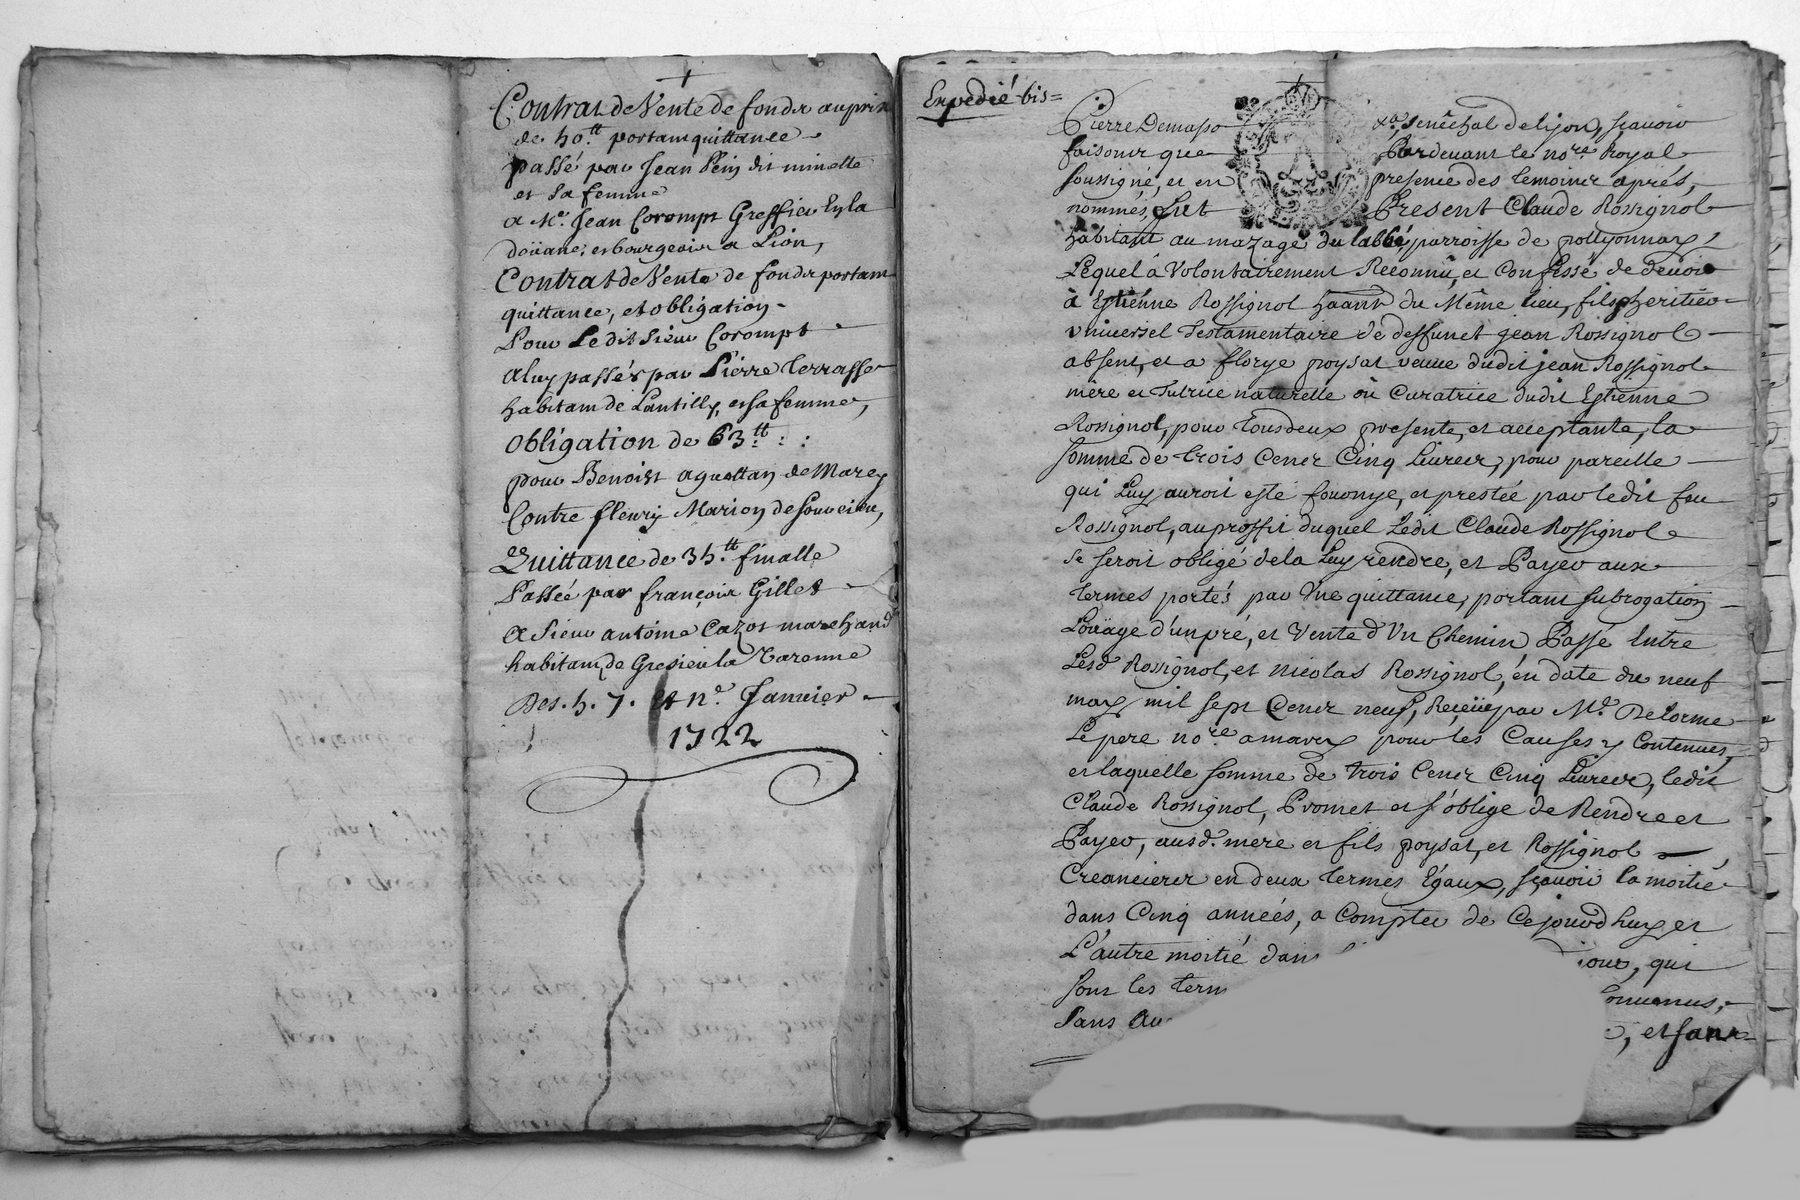 Contrat de Vente de fonds au prix
de 40.tt portant quittance
passé par Jean Pein dit minette
et sa femme
a Me. Jean Corompt Greffier En la
doüane, et bourgeois a Lion,
Contrat de Vente de fonds portant
quittance, et obligation
Pour Le dit Sieur Corompt
a luy passés par Pierre terrasse
habitant de Lantilly, et sa femme,
Obligation de 63.tt : :
pour Benoist aguettan de Marcy
Contre fleury Marion de Souvcieu,
Quittance de 34.tt finalle
Passée par françois Gillet
a Sieur antoine Cazot marchand
habitant de Gresieu la Varenne
Des. 4. 7. et ne Janvier
1722
Expedié bis=
Pierre Demasso senéchal de lyon, sçavoir
faisons que Pardevant le nore. Royal
soussigné, et en presence des temoins aprés,
nommés, fut Present Claude Rossignol
habitant au mazage du labbé, parroisse de pollyonnay,
Lequel à Volontairement Reconnû, et Confessé de devoir
à Estiénne Rossignol haant du Même lieu, fils heritier
universel testamentaire de deffunct jean Rossignol
absent, et a florye poysat veuve dudit jean Rossignol
mère et tutrice naturelle où Curatrice dudit Estienne
Rossignol, pour tous deux presente, et acceptante, la
somme de trois Cents Cinq Livres, pour pareille
qui Luy auroit esté fournye, et prestée par ledit feu
Rossignol, au proffit duquel Ledit Claude Rossignol
se seroit obligé de la Luy rendre, et Payer aux
termes portés par Une quittance, portant subrogation
Loüage d'un pré, et Vente d'Un Chemin Passé Entre
Lesd. Rossignol, et Nicolas Rossignol, én date du neuf
may mil sept Cents neuf, Reçeüe par Me. Delorme
Le pere nore. a marcy pour les Causes y Contenues,
et laquelle somme de trois Cents Cinq Livres, ledit
Claude Rossignol, Promet et s'oblige de Rendre et
Payer, ausd. mere et fils poysat, et Rossignol
Creanciers en deux termes Egaux, sçavoir la moitié
dans Cinq années, a Compter de Cejourd'huy et
L'autre moitié dans jour, qui
sont les Convenus,
Sans et sans